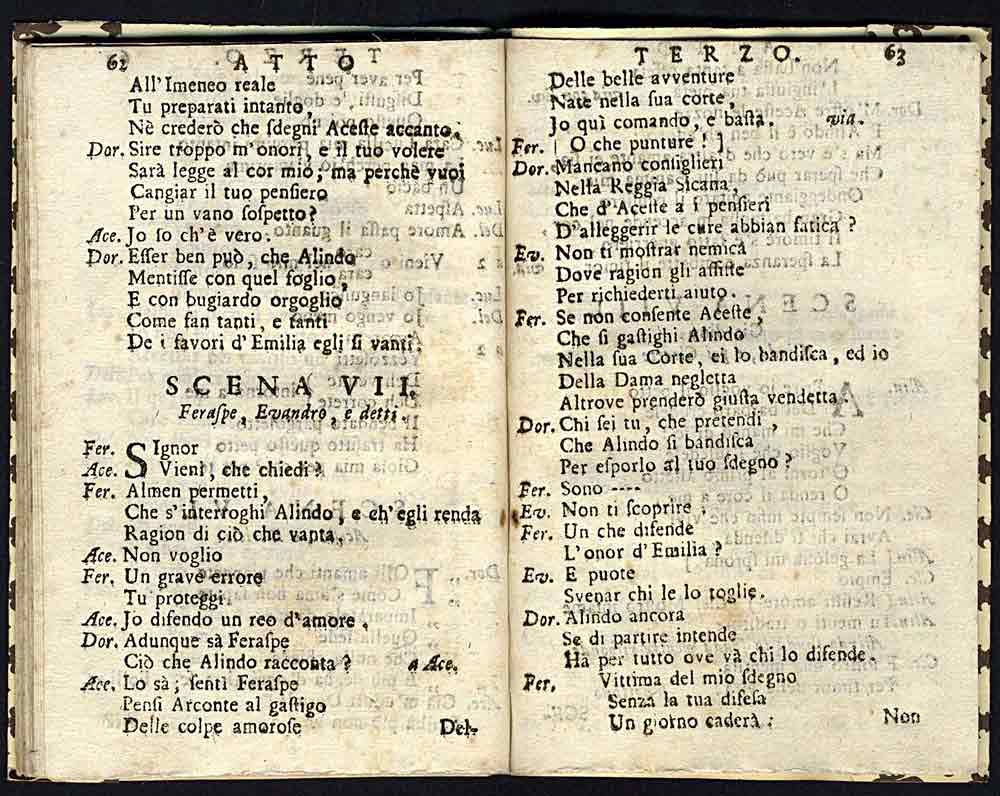 62 ATTO
All'Imeneo reale
Tu preparati intanto,
Nè crederò che ſdegni Aceſte accanto.
Dor. Sire troppo m'onori, e il tuo volere
Sarà legge al cor mio; ma perchè vuoi
Cangiar il tuo penſiero
Per un vano ſoſpetto?
Ace. Jo ſo ch'è vero.
Dor. Eſſer ben può, che Alindo
Mentiſſe con quel foglio,
E con bugiardo orgoglio
Come fan tanti, e tanti
De i favori d'Emilia egli ſi vanti.
SCENA VII.
Feraſpe, Evandro, e detti.
Fer. SIgnor
Ace. Vieni, che chiedi?
Fer. Almen permetti,
Che s'interroghi Alindo, e ch'egli renda
Ragion di ciò che vanta,
Ace. Non voglio
Fer. Un grave errore
Tu proteggi.
Ace. Jo difendo un reo d'amore.
Dor. Adunque sà Feraſpe
Ciò che Alindo racconta? a Ace.
Ace. Lo sà; ſenti Feraſpe
Penſi Arconte al gaſtigo
Delle colpe amoroſe
Del-
TERZO. 63
Delle belle avventure
Nate nella ſua corte,
Jo quì comando, e baſta. via.
Fer. [ O che punture! ]
Dor. Mancano conſiglieri
Nella Reggia Sicana,
Che d'Aceſte a i penſieri
D'alleggerir le cure abbian fatica?
Ev. Non ti moſtrar nemica
Dove ragion gli aſſiſte
Per richiederti aiuto.
Fer. Se non conſente Aceſte,
Che ſi gaſtighi Alindo
Nella ſua Corte, ei lo bandiſca, ed io
Della Dama negletta
Altrove prenderò giuſta vendetta.
Dor. Chi ſei tu, che pretendi,
Che Alindo ſi bandiſca
Per eſporlo al tuo ſdegno?
Fer. Sono ----
Ev. Non ti ſcoprire.
Fer. Un che difende
L'onor d'Emilia?
Ev. E puote
Svenar chi le lo toglie.
Dor. Alindo ancora
Se di partire intende
Ha per tutto ove và chi lo difende.
Fer. Vittima del mio ſdegno
Senza la tua difeſa
Un giorno caderà:
Non